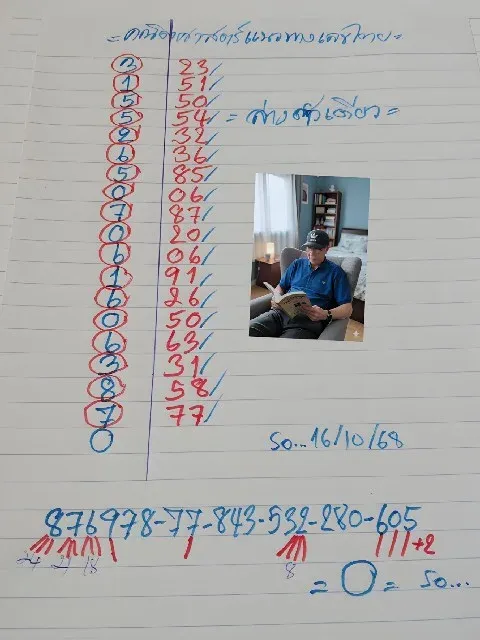 = คณิตศาสตร์แนวทางเลขไทย =
3 23/
1 51/
5 50/
5 54/ = ล่างตัวเดียว =
2 32/
6 36/
5 85/
0 06/
7 87/
0 20/
6 06/
1 91/
6 26/
0 50/
6 63/
3 31/
8 58/
7 77/
0 รอ...16/10/68
876978-77-843-532-280-605
24 21 18 8 +2
= 0 = รอ...